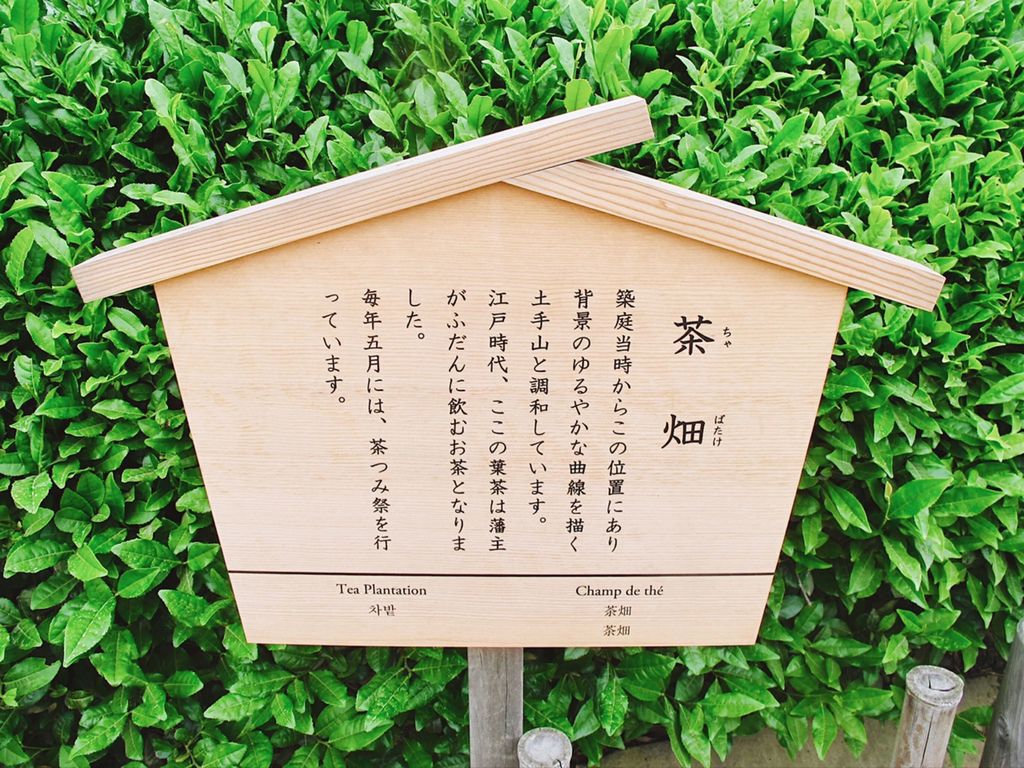 茶畑
ちゃ
ばたけ
築庭当時からこの位置にあり
背景のゆるやかな曲線を描く
土手山と調和しています。
江戸時代、ここの葉茶は藩主
がふだんに飲むお茶となりま
した。
毎年五月には、茶つみ祭を行
っています。
Tea Plantation
차밭
Champ de thé
茶畑
茶畑